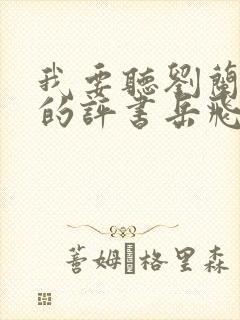 我要聽劉蘭
的評書岳飛
蓍姆·格里森